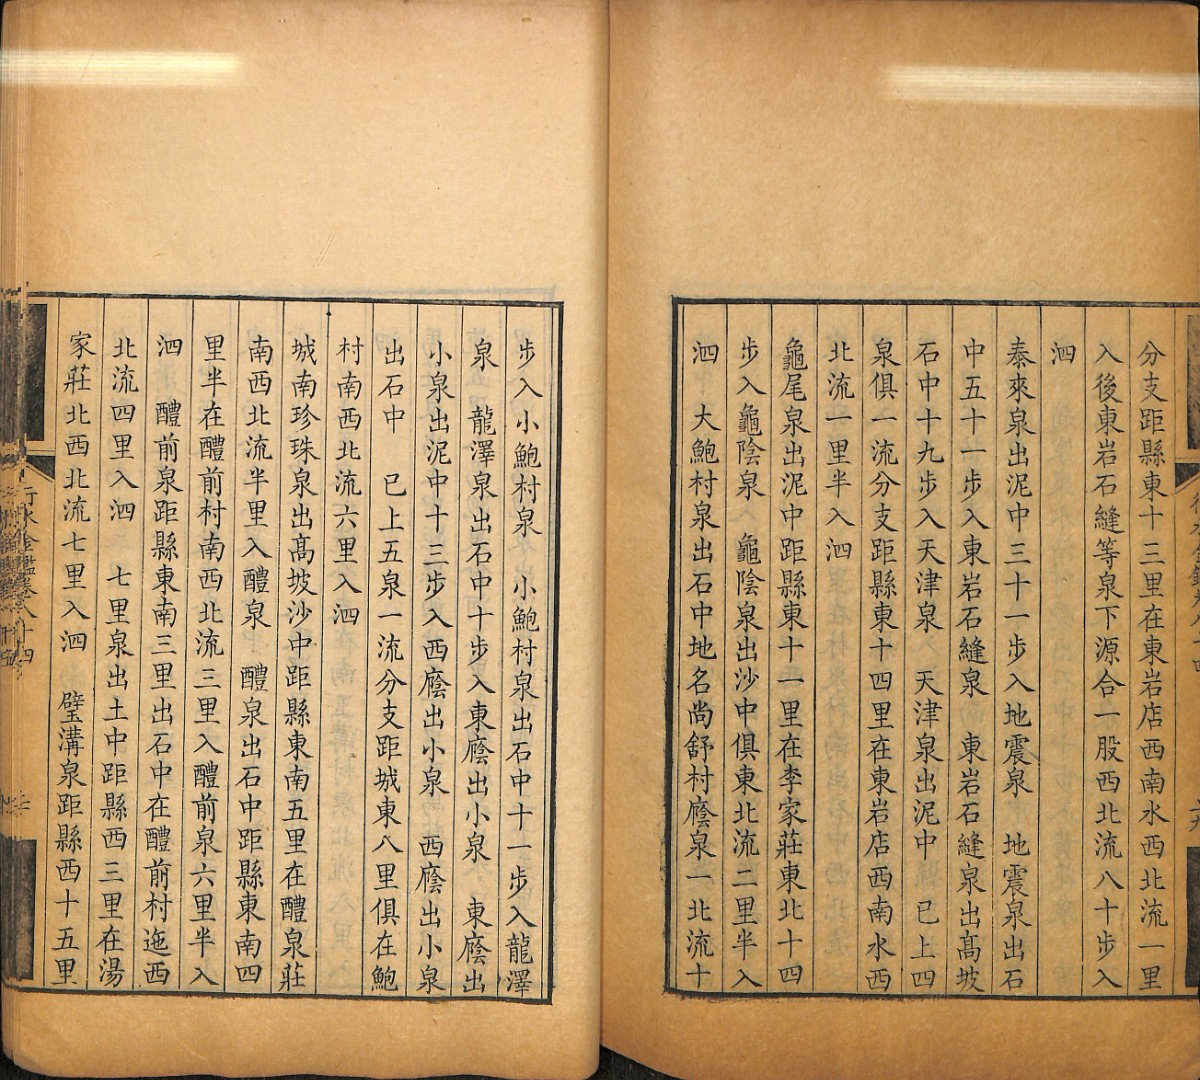 分支距縣東十三里在東岩店西南水西北流一里
入後東岩石縫等泉下源合一股西北流八十步入
泗
泰來泉出泥中三十一步入地震泉　地震泉出石
中五十一步入東岩石縫泉　東岩石縫泉出髙坡
石中十九步入天津泉　天津泉出泥中　已上四
泉俱一流分支距縣東十四里在東岩店西南水西
北流一里半入泗
龜尾泉出泥中距縣東十一里在李家莊東北十四
步入龜陰泉　龜陰泉出沙中俱東北流二里半入
泗　大鮑村泉出石中地名尚舒村廕泉一北流十
步入小鮑村泉　小鮑村泉出石中十一步入龍澤
泉　龍澤泉出石中十步入東廕出小泉　東廕出
小泉出泥中十三步入西廕出小泉　西廕出小泉
出石中　已上五泉一流分支距城東八里俱在鮑
村南西北流六里入泗
城南珍珠泉出髙坡沙中距縣東南五里在醴泉莊
南西北流半里入醴泉　醴泉出石中距縣東南四
里半在醴前村南西北流三里入醴前泉六里半入
泗　醴前泉距縣東南三里出石中在醴前村迤西
北流四里入泗　七里泉出土中距縣西三里在湯
家莊北西北流七里入泗　璧溝泉距縣西十五里
行水金鑑卷八十四